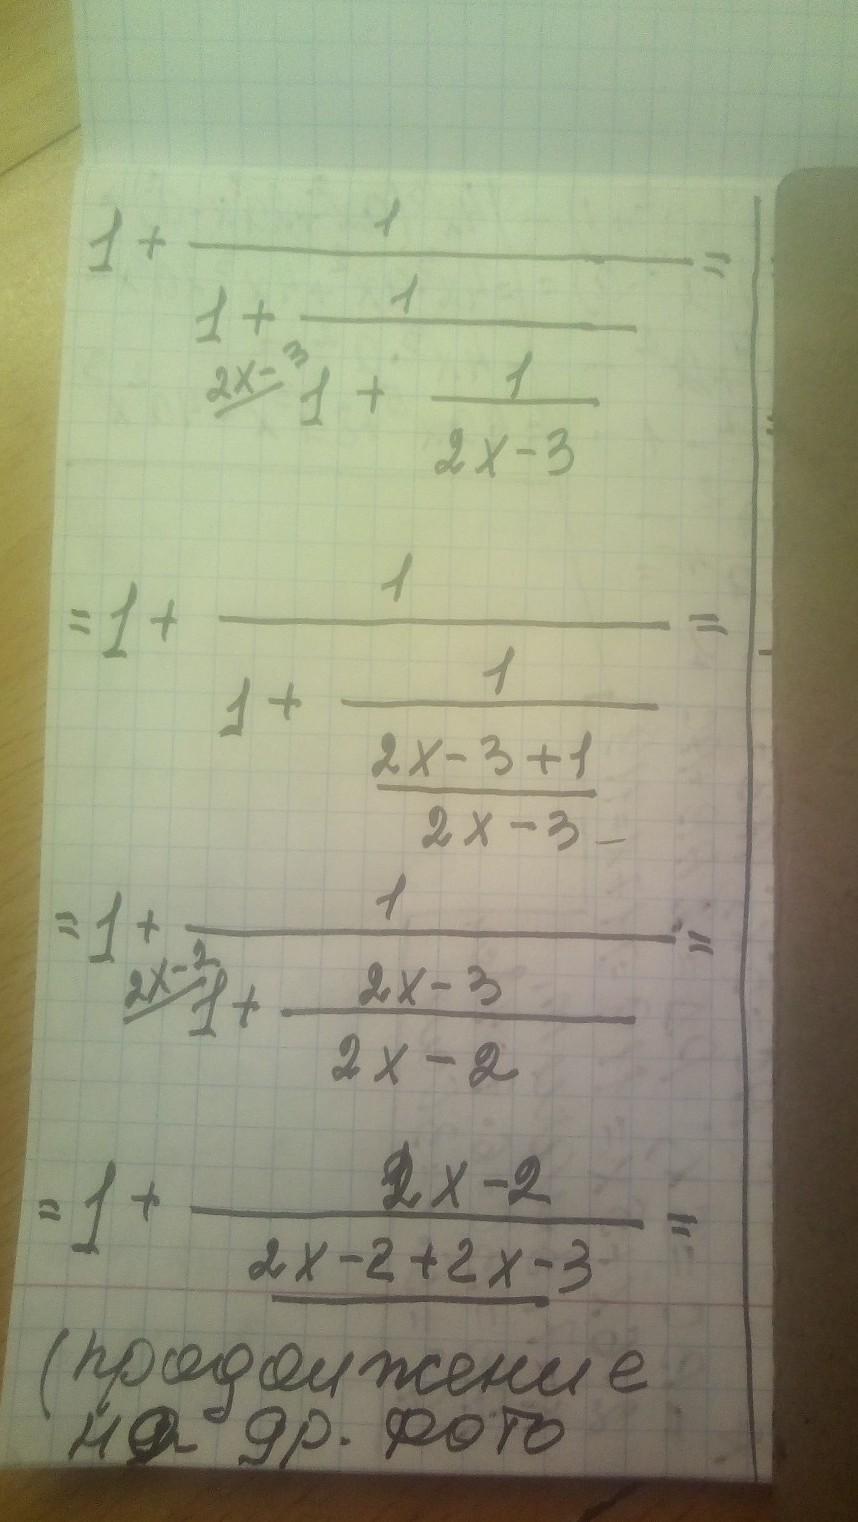 1 + 1 =
1 + 1
2x-3 1 + 1
2x-3
= 1 + 1 =
1 + 1
2x-3+1
2x-3
= 1 + 1 =
2x-2 1 + 2x-3
2x-2
= 1 + 2x-2 =
2x-2+2x-3
(продолжение
на др. фото